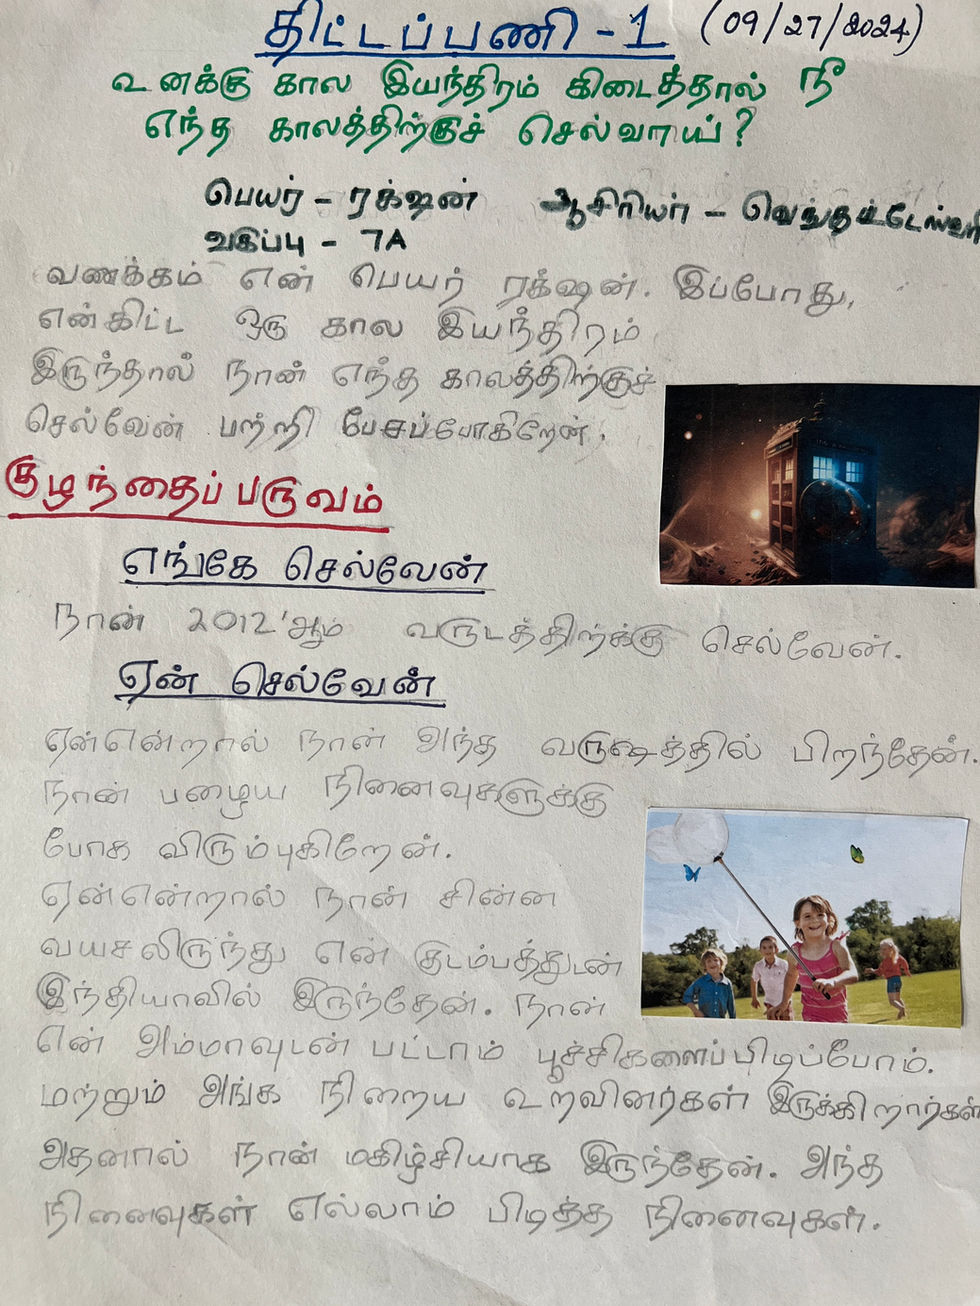 திட்டப்பணி - 1 (09/27/2024)
உனக்கு கால இயந்திரம் கிடைத்தால் நீ
எந்த காலத்திற்குச் செல்வாய்?
பெயர் - ரக்ஷன் ஆசிரியர் -
வகுப்பு - 7A
வணக்கம் என் பெயர் ரக்ஷன். இப்போது,
என்கிட்ட ஒரு கால இயந்திரம்
இருந்தால் நான் எந்த காலத்திற்குச்
செல்வேன் பற்றி பேசப்போகிறேன்.
குழந்தைப் பருவம்
எங்கே செல்வேன்
நான் 2012'ஆம் வருடத்திற்க்கு செல்வேன்.
ஏன் செல்வேன்
ஏன்என்றால் நான் அந்த வருஷத்தில் பிறந்தேன்.
நான் பழைய நினைவுகளுக்கு
போக விரும்புகிறேன்.
ஏன்என்றால் நான் சின்ன
வயசலிருந்து என் குடம்பத்துடன்
இந்தியாவில் இருந்தேன். நான்
என் அம்மாவுடன் பட்டாம் பூச்சிகளைப்பிடிப்போம்.
மற்றும் அங்க நிறைய உறவினர்கள் இருக்கிறார்கள்
அதனால் நான் மகிழ்சியாக இருந்தேன். அந்த
நினைவுகள் எல்லாம் பிடித்த நினைவுகள்.